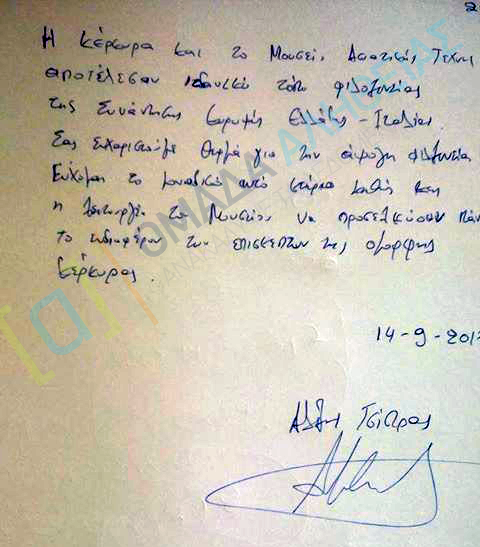 2
Η Κέρκυρα και το Μουσείο Ασιατικής Τέχνης
αποτέλεσαν ιδανικό τόπο φιλοξενίας
της Συνάντησης Κορυφής Ελλάδας - Ιταλίας
Σας ευχαριστούμε θερμά για την άψογη φιλοξενία
Εύχομαι το μοναδικό αυτό κτίριο καθώς και
η λειτουργία του Μουσείου, να προσελκύσουν
το ενδιαφέρον των επισκεπτών της όμορφης
Κέρκυρας.
14-9-201
Τσίπρας
ΟΜΑΔΑ ΑΛΗΘΕΙΑΣ